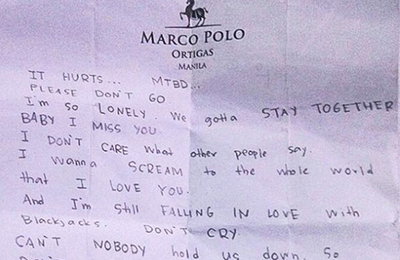 MARCO POLO
ORTIGAS
MANILA
IT HURTS... MTBD...
PLEASE DON'T GO
I'm so LONELY. We gotta STAY TOGETHER
BABY I MISS YOU
I DON'T CARE what other people say.
I wanna SCREAM to the whole world
that I LOVE YOU.
And I'm still FALLING IN LOVE with
Blackjacks. DON'T CRY.
CAN'T NOBODY hold us down. So